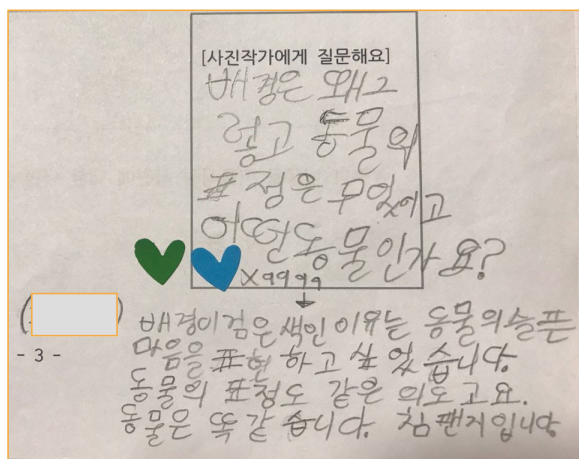 [사진작가에게 질문해요]
배경은 왜그
렇고 동물의
표정은 무엇이고
어떤동물인가요?
X9999
배경이검은색인이유는 동물의슬픈
마음을표현하고싶었습니다.
- 3 -
동물의 표정도 같은 의도고요.
동물은 똑같습니다. 침팬지입니다